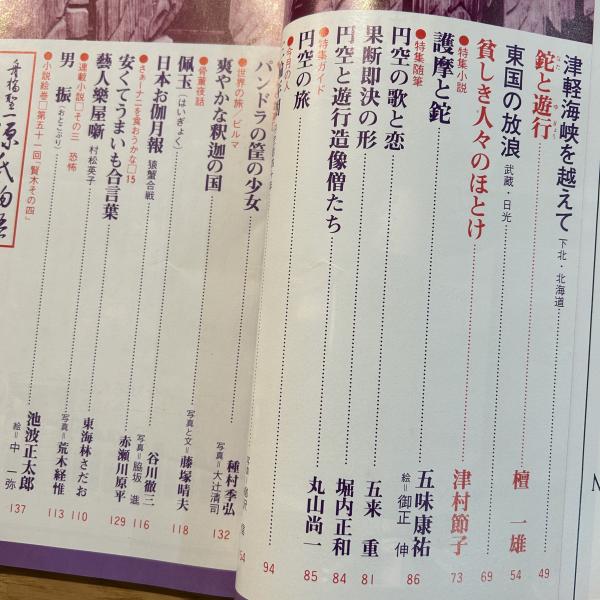 津軽海峡を越えて 下北・北海道 49
鉈と遊行 檀 一雄 54
東国の放浪 武蔵・日光 69
●特集小説
貧しき人々のほとけ 津村節子 73
護摩と鉈 五味康祐 絵=御正 伸 86
●特集随筆
円空の歌と恋 五来 重 81
果断即決の形 堀内正和 84
円空と遊行造像僧たち 丸山尚一 85
●特集ガイド
円空の旅 94
●今月の人
パンドラの筐の少女
●世界の旅/ビルマ
爽やかな釈迦の国 種村季弘 写真=大辻清司 132
●骨董夜話
佩玉(はいぎょく) 写真と文=藤塚晴夫 118
日本お伽月報 猿蟹合戦 谷川徹三 写真=脇坂 進 116
●さぁーナニを食おうかな□15
安くてうまいも合言葉 赤瀬川原平 129
藝人樂屋噺 村松英子 東海林さだお 110
●連載小説□その三 恐怖
男 振(おとこぶり) 写真=荒木経惟 113
池波正太郎 絵=中 一弥 137
●小説絵巻□第五十一回「賢木その四」
舟橋聖一 源氏物語